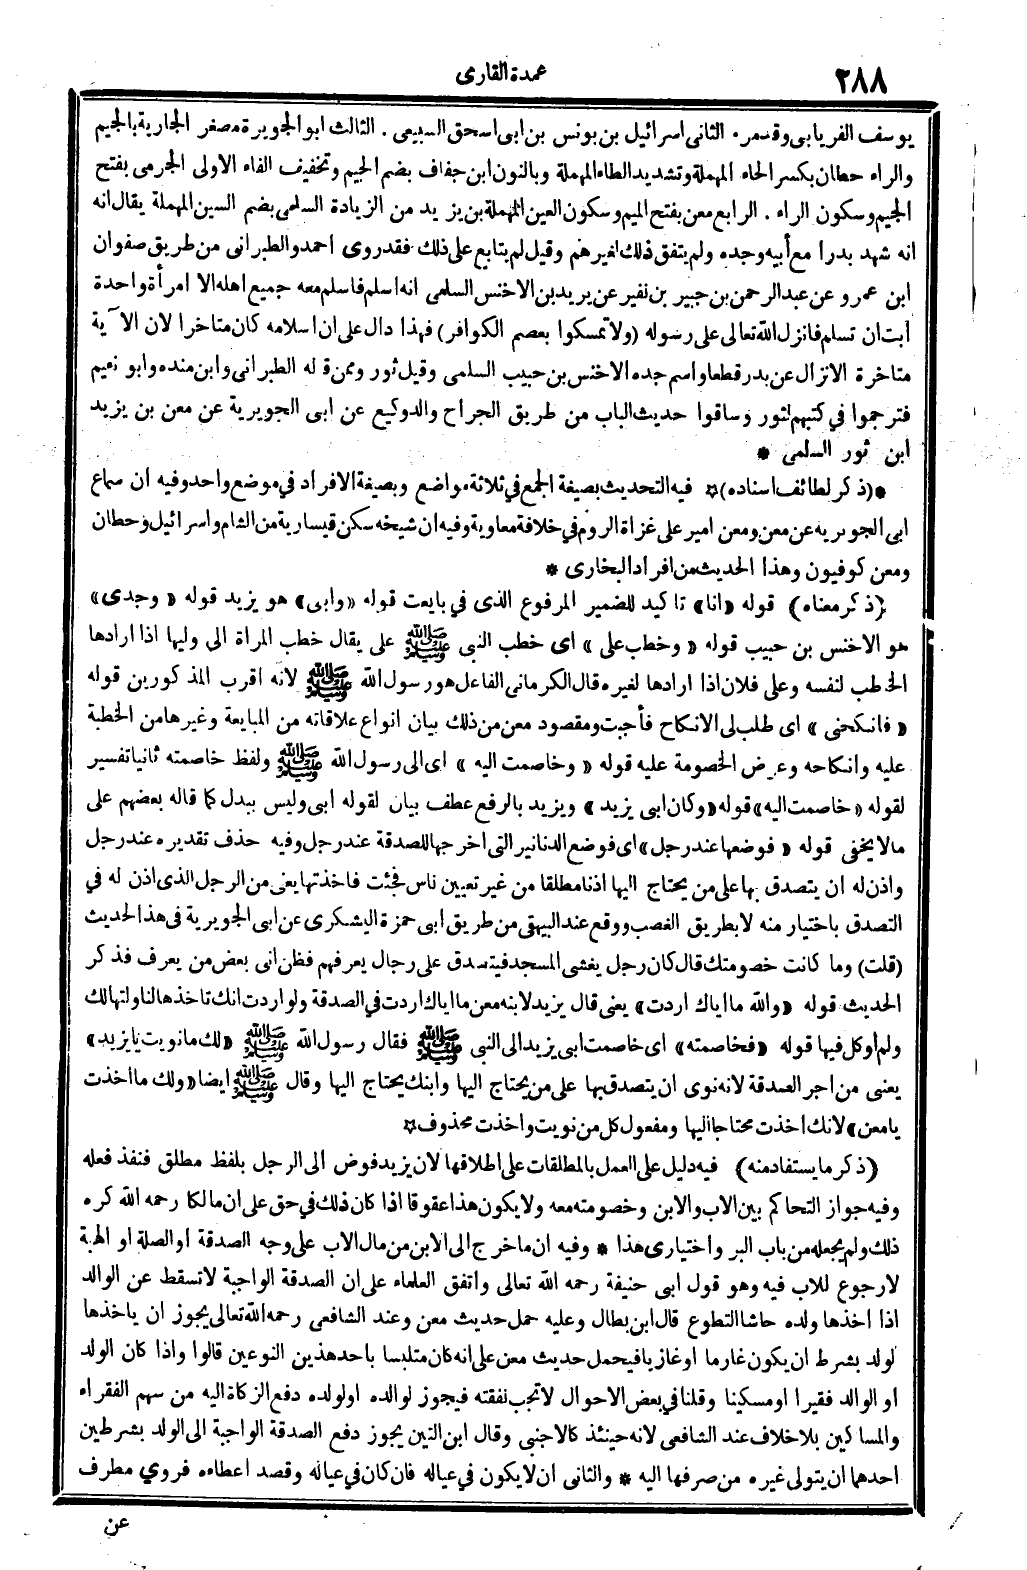 ٢٨٨
عمدة القارى
يوسف الفريابى وقدمر. الثانى اسرائيل بن يونس بن ابى اسحق السبيعى. الثالث ابو الجويرة مصغر الجارية بالجيم
والراء حطان بكسر الحاء المهملة وتشديد الطاء المهملة وبالنون ابن جفاف بضم الجيم وتخفيف الفاء الاولى الجرمى بفتح
الجيم وسكون الراء. الرابع معن بفتح الميم وسكون العين المهملة بن يزيد من الزيادة السلمى بضم السين المهملة يقال انه
انه شهد بدرا مع أبيه وجده ولم يتفق ذلك لغيرهم وقيل لم يتابع على ذلك فقدروى احمد والطبرانى من طريق صفوان
ابن عمرو عن عبد الرحمن بن جبير بن نفير عن يزيد بن الاخنس السلمى انه اسلم فاسلم معه جميع اهله الا امرأة واحدة
أبت ان تسلم فانزل الله تعالى على رسوله (ولا تمسكوا بعصم الكوافر) فهذا دال على ان اسلامه كان متاخرا لان الآية
متاخرة الانزال عن بدر قطعا واسم جده الاخنس بن حبيب السلمى وقيل ثور وممن قاله الطبرانى وابن منده وابو نعيم
فترجموا في كتبهم لثور وساقوا حديث الباب من طريق الجراح والد وكيع عن ابى الجويرية عن معن بن يزيد
ابن ثور السلمى *
*(ذكر لطائف اسناده)* فيه التحديث بصيغة الجمع في ثلاثة مواضع وبصيغة الافراد في موضع واحد وفيه ان سماع
ابى الجويريه عن معن ومعن امير على غزاة الروم في خلافة معاوية وفيه ان شيخه سكن قيسارية من الشام واسرائيل وحطان
ومعن كوفيون وهذا الحديث من افراد البخارى *
(ذكر معناه) قوله «انا» تاكيد للضمير المرفوع الذى في بايعت قوله «وابى» هو يزيد قوله «وجدى»
هو الاخنس بن حبيب قوله «وخطب على» اى خطب النبى ﷺ على يقال خطب المراة الى وليها اذا ارادها
الخاطب لنفسه وعلى فلان اذا ارادها لغيره قال الكرمانى الفاعل هو رسول الله ﷺ لانه اقرب المذكورين قوله
«فانكحنى» اى طلب لى الانكاح فأجبت ومقصود معن من ذلك بيان انواع علاقاته من المبايعة وغيرها من الخطبة
عليه وانكاحه وعرض الخصومة عليه قوله «وخاصمت اليه» اى الى رسول الله ﷺ ولفظ خاصمته ثانيا تفسير
لقوله «خاصمت اليه» قوله «وكان ابى يزيد» ويزيد بالرفع عطف بيان لقوله ابى وليس ببدل كما قاله بعضهم على
مالا يخفى قوله «فوضعها عند رجل» اى فوضع الدنانير التى اخرجها للصدقة عند رجل وفيه حذف تقديره عند رجل
واذن له ان يتصدق بها على من يحتاج اليها اذنا مطلقا من غير تعيين ناس فجئت فاخذتها يعنى من الرجل الذى اذن له في
التصدق باختيار منه لا بطريق الغصب ووقع عند البيهقى من طريق ابى حمزة اليشكرى عن ابى الجويرية فى هذا الحديث
(قلت) وما كانت خصومتك قال كان رجل يغشى المسجد فيتصدق على رجال يعرفهم فظن انى بعض من يعرف فذكر
الحديث قوله «والله ما اياك اردت» يعنى قال يزيد لابنه معن ما اياك اردت في الصدقة ولو اردت انك تاخذها لناولتها لك
ولم اوكل فيها قوله «فخاصمته» اى خاصمت ابى يزيد الى النبى ﷺ فقال رسول الله ﷺ «لك ما نويت يا يزيد»
يعنى من اجر الصدقة لانه نوى ان يتصدق بها على من يحتاج اليها وابنك يحتاج اليها وقال ﷺ ايضا «ولك ما اخذت
يا معن» لانك اخذت محتاجا اليها ومفعول كل من نويت واخذت محذوف*
(ذكر ما يستفاد منه) فيه دليل على العمل بالمطلقات على اطلاقها لان يزيد فوض الى الرجل بلفظ مطلق فنفذ فعله
وفيه جواز التحاكم بين الاب والابن وخصومته معه ولا يكون هذا عقوقا اذا كان ذلك في حق على ان مالكا رحمه الله كره
ذلك ولم يجعله من باب البر واختيارى هذا * وفيه ان ما خرج الى الابن من مال الاب على وجه الصدقة او الصلة او الهبة
لا رجوع للاب فيه وهو قول ابى حنيفة رحمه الله تعالى واتفق العلماء على ان الصدقة الواجبة لا تسقط عن الوالد
اذا اخذها ولده حاشا التطوع قال ابن بطال وعليه حمل حديث معن وعند الشافعى رحمه الله تعالى يجوز ان ياخذها
لولد بشرط ان يكون غارما او غازيا فيحمل حديث معن على انه كان متلبسا باحد هذين النوعين قالوا واذا كان الولد
او الوالد فقيرا او مسكينا وقلنا في بعض الاحوال لا تجب نفقته فيجوز لوالده اولولده دفع الزكاة اليه من سهم الفقراء
والمساكين بلا خلاف عند الشافعى لانه حينئذ كالاجنبى وقال ابن التين يجوز دفع الصدقة الواجبة الى الولد بشرطين
احدهما ان يتولى غيره من صرفها اليه * والثانى ان لا يكون في عياله فان كان في عياله وقصد اعطاءه فروي مطرف
عن